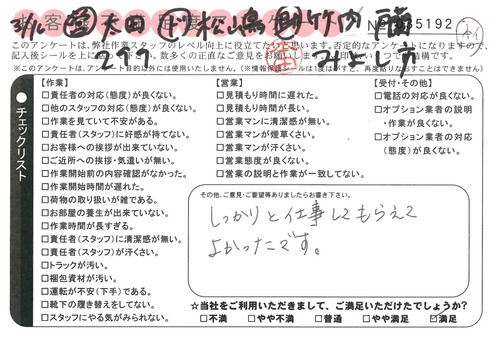 3/1 営 太田 ド 松山 島 助 竹内
No 035192
297
このアンケートは、弊社作業スタッフのレベル向上に役立てたいと思います。否定的なアンケートになりますので、
記入後シールを上に
数多くの正直なご意見をお願いします
※このアンケートは、アンケート目的以外には使用いたしません。(※情報保護シールは1度はがすと、再度貼りなおすことはできません)
チェックリスト
【作業】
□責任者の対応(態度)が良くない。
□他のスタッフの対応(態度)が良くない。
□作業を見ていて不安がある。
□責任者(スタッフ)に好感が持てない。
□お客様への挨拶が出来ていない。
□ご近所への挨拶・気遣いが無い。
□作業開始前の内容確認がなかった。
□作業開始時間が遅れた。
□荷物の取り扱いが雑である。
□お部屋の養生が出来ていない。
□作業時間が長すぎる。
□責任者(スタッフ)に清潔感が無い。
□責任者(スタッフ)が汗くさい。
□トラックが汚い。
□梱包資材が汚い。
□運転が不安(下手)である。
□靴下の履き替えをしてない。
□スタッフにやる気がみられない。
【営業】
□見積もり時間に遅れた。
□見積もり時間が長い。
□営業マンに清潔感が無い。
□営業マンが煙草くさい。
□営業マンが汗くさい。
□営業態度が良くない。
□営業の説明と作業が一致してない。
【受付・その他】
□電話の対応が良くない。
□オプション業者の説明
・作業が良くない。
□オプション業者の対応
(態度)が良くない。
その他、ご意見・ご要望等ありましたらお書き下さい。
しっかりと仕事してもらえて
よかったです。
☆当社をご利用いただきまして、ご満足いただけたでしょうか?
□不満 □やや不満 □普通 □やや満足 ☑満足